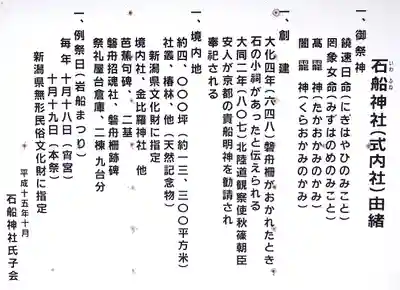 石船神社(式内社)由緒
いわ ふね
一、御祭神
饒速日命(にぎはやひのみこと)
罔象女命(みずはのめのみこと)
高龗神(たかおかみのかみ)
闇龗神(くらおかみのかみ)
一、創建
大化四年(六四八)磐舟柵がおかれたとき
石の小祠があったと伝えられる
大同二年(八〇七)北陸道観察使秋篠朝臣
安人が京都の貴船明神を勧請され
奉祀される
一、境内地
約四、〇〇〇坪(約一三、三〇〇平方米)
社叢、椿林、他(天然記念物)
新潟県文化財に指定
境内社、金比羅神社 他
芭蕉句碑、二基
磐舟招魂社、磐舟柵跡碑
祭礼屋台倉庫、二棟 九台分
一、例祭日(岩船まつり)
毎年 十月十八日(宵宮)
十月十九日(本祭)
新潟県無形民俗文化財に指定
平成十五年十月
石船神社氏子会